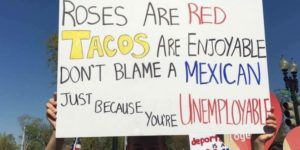 ROSES ARE RED
TACOS ARE ENJOYABLE
DON'T BLAME A MEXICAN
JUST BECAUSE YOU'RE UNEMPLOYABLE
depor